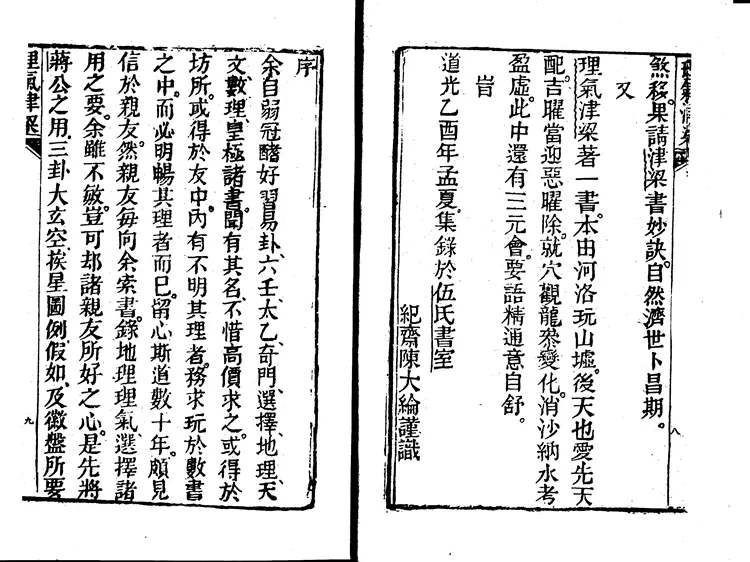 煞移。果請津梁書妙訣。自然濟世卜昌期。
又
理氣津梁著一書。本由河洛玩山墟。後天也愛先天
配。吉曜當迎惡曜除。就穴觀龍叅變化。消沙納水考
盈虛。此中還有三元會。要語精通意自舒。
旹
道光乙酉年孟夏。集錄於伍氏書室
紀齋陳大綸謹識
八
序
余自弱冠醝好習易卦、六壬、太乙、奇門、選擇、地理、天
文數理、皇極諸書。聞有其名、不惜高價求之。或得於
坊所。或得於友中。內有不明其理者。務求玩於數書
之中。而必明暢其理者而巳。留心斯道數十年。頗見
信於親友。然親友每向余索書。錄地理理氣、選擇諸
用之要。余雖不敏。豈可却諸親友所好之心。是先將
蔣公之用、三卦、大玄空、挨星圖例、假如、及徽盤所要
理氣津梁
九